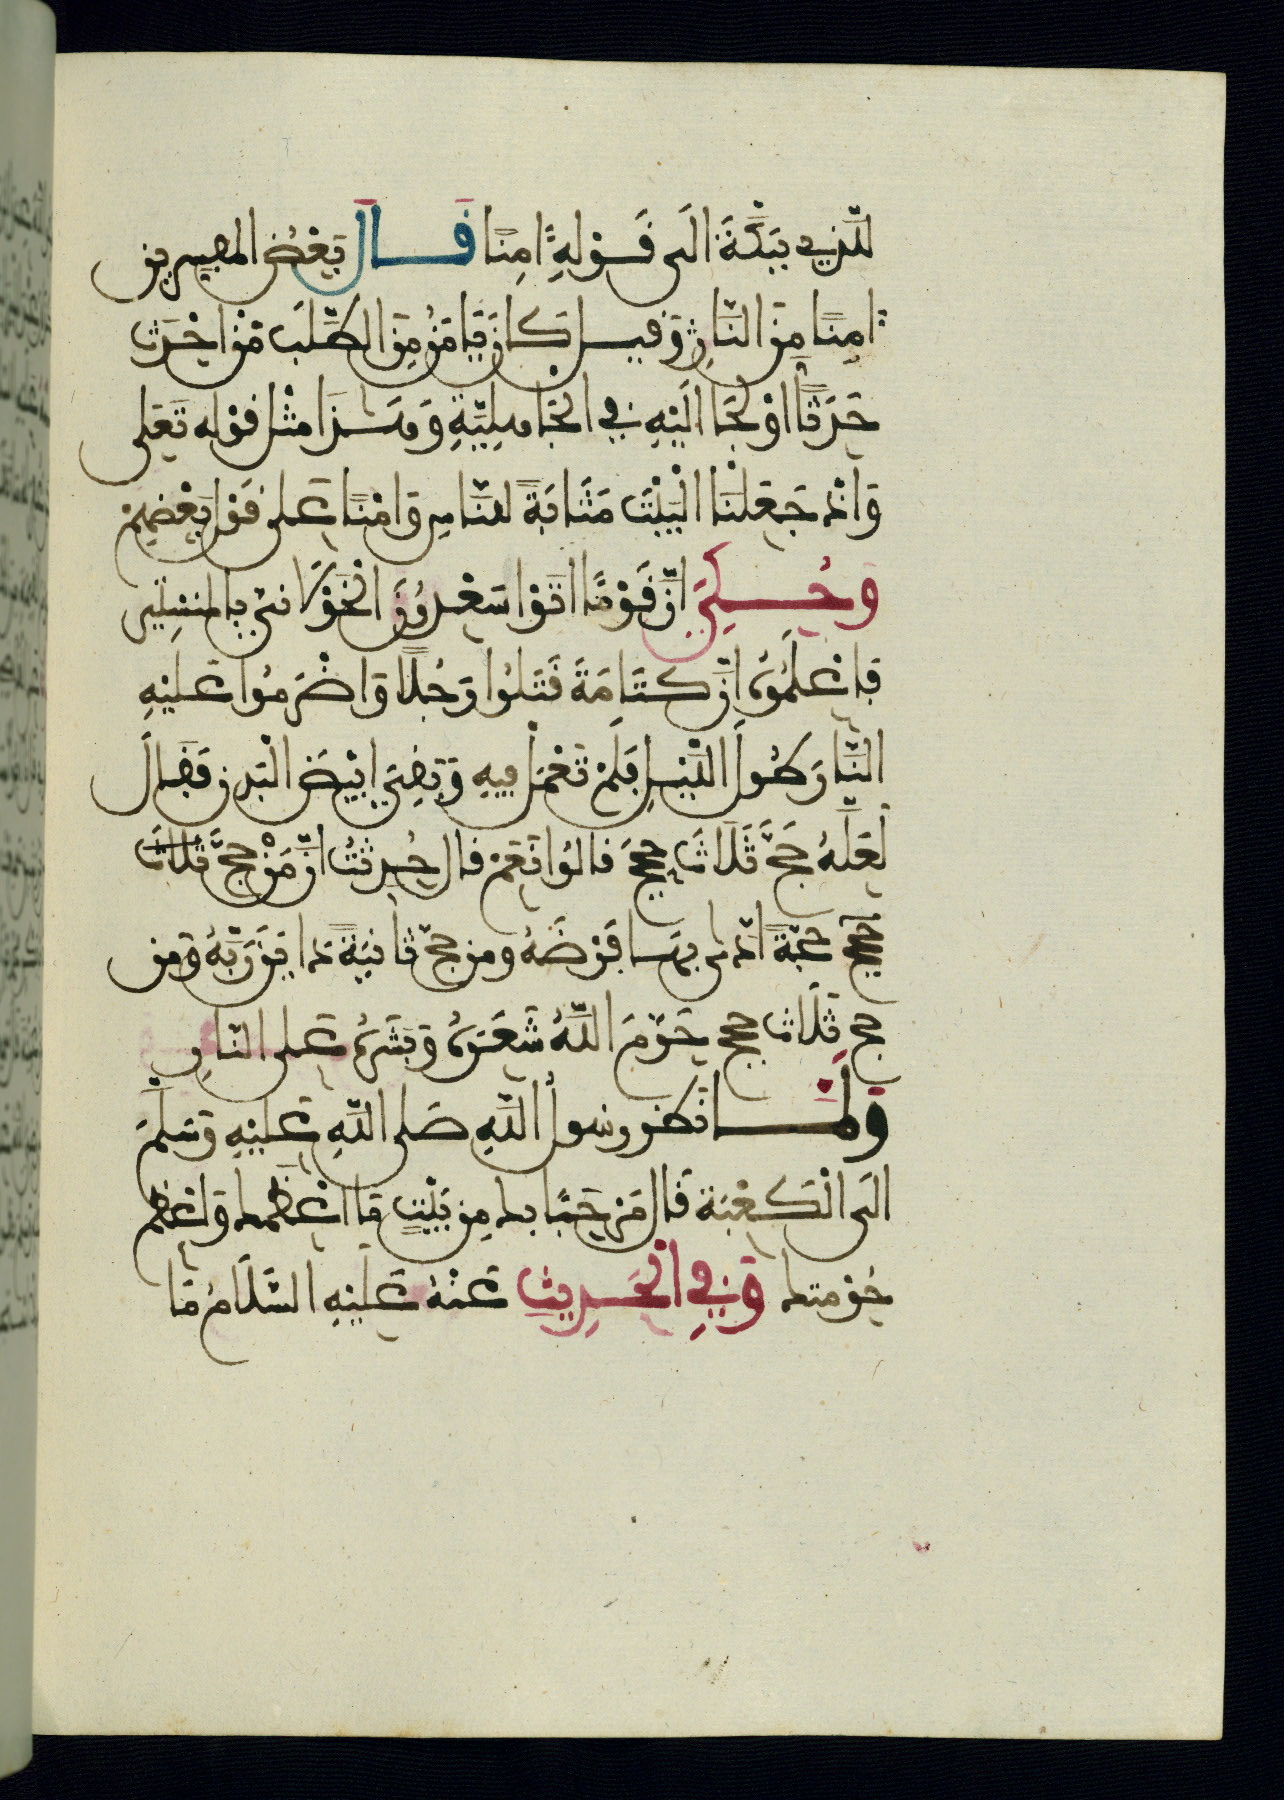 للذي ببكة الى قوله ءامنا قال بعض المفسرين
ءامنا من النار وقيل كان يامن من الطلب من احدث
حدثا او لجا اليه في الجاهلية وهذا مثل قوله تعلى
واذ جعلنا البيت مثابة للناس وامنا على قول بعضهم
وحكي ان قوما اتوا سعدون الخولاني بالمنستير
فاعلموه ان كتامة قتلوا رجلا واضرموا عليه
النار طول الليل فلم تعمل فيه وبقي ابيض البدن فقال
لعله حج ثلاث حجج قالوا نعم قال حدثت ان من حج ثلاث
حجج حجة ادى بها فرضه ومن حج ثانية داين ربه ومن
حج ثلاث حجج حرم الله شعره وبشره على النار
ولما نظر رسول الله صلى الله عليه وسلم
الى الكعبة قال مرحبا بك من بيت ما اعظمك واعظم
حرمتك وفي الحديث عنه عليه السلام ما